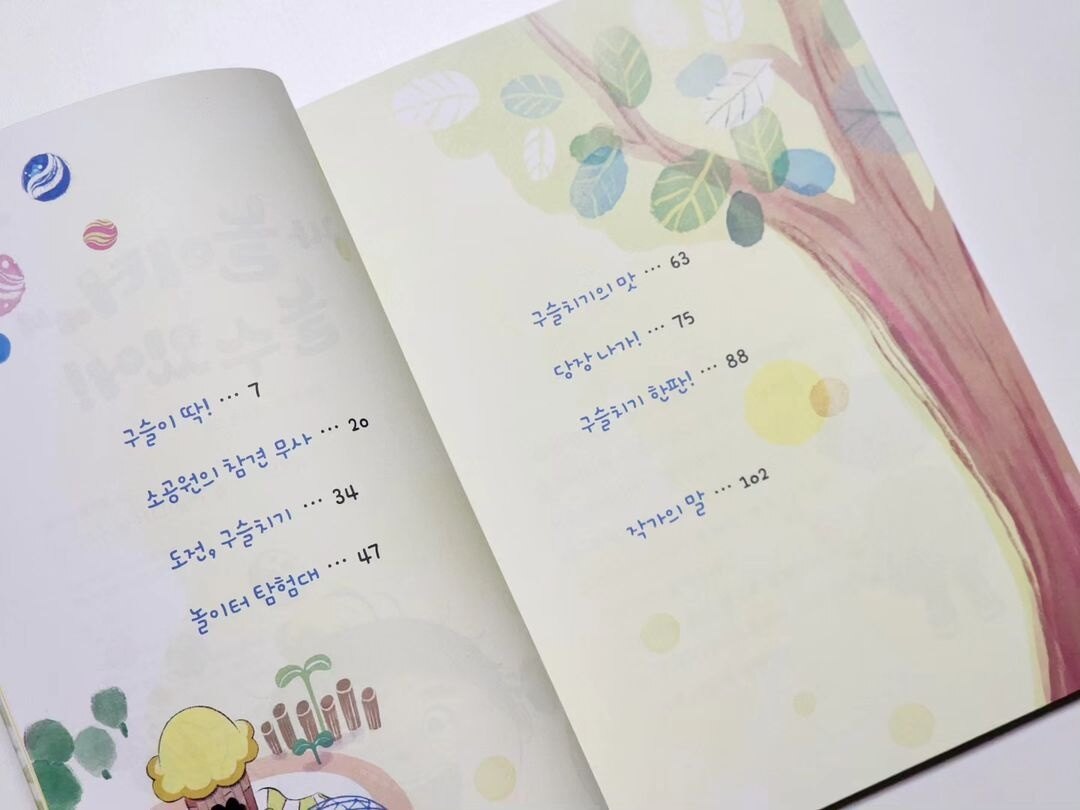 구슬이 딱! … 7
소공원의 참견 무사 … 20
도전, 구슬치기 … 34
놀이터 탐험대 … 47
구슬치기의 맛 … 63
당장 나가! … 75
구슬치기 한판! … 88
작가의 말 … 102